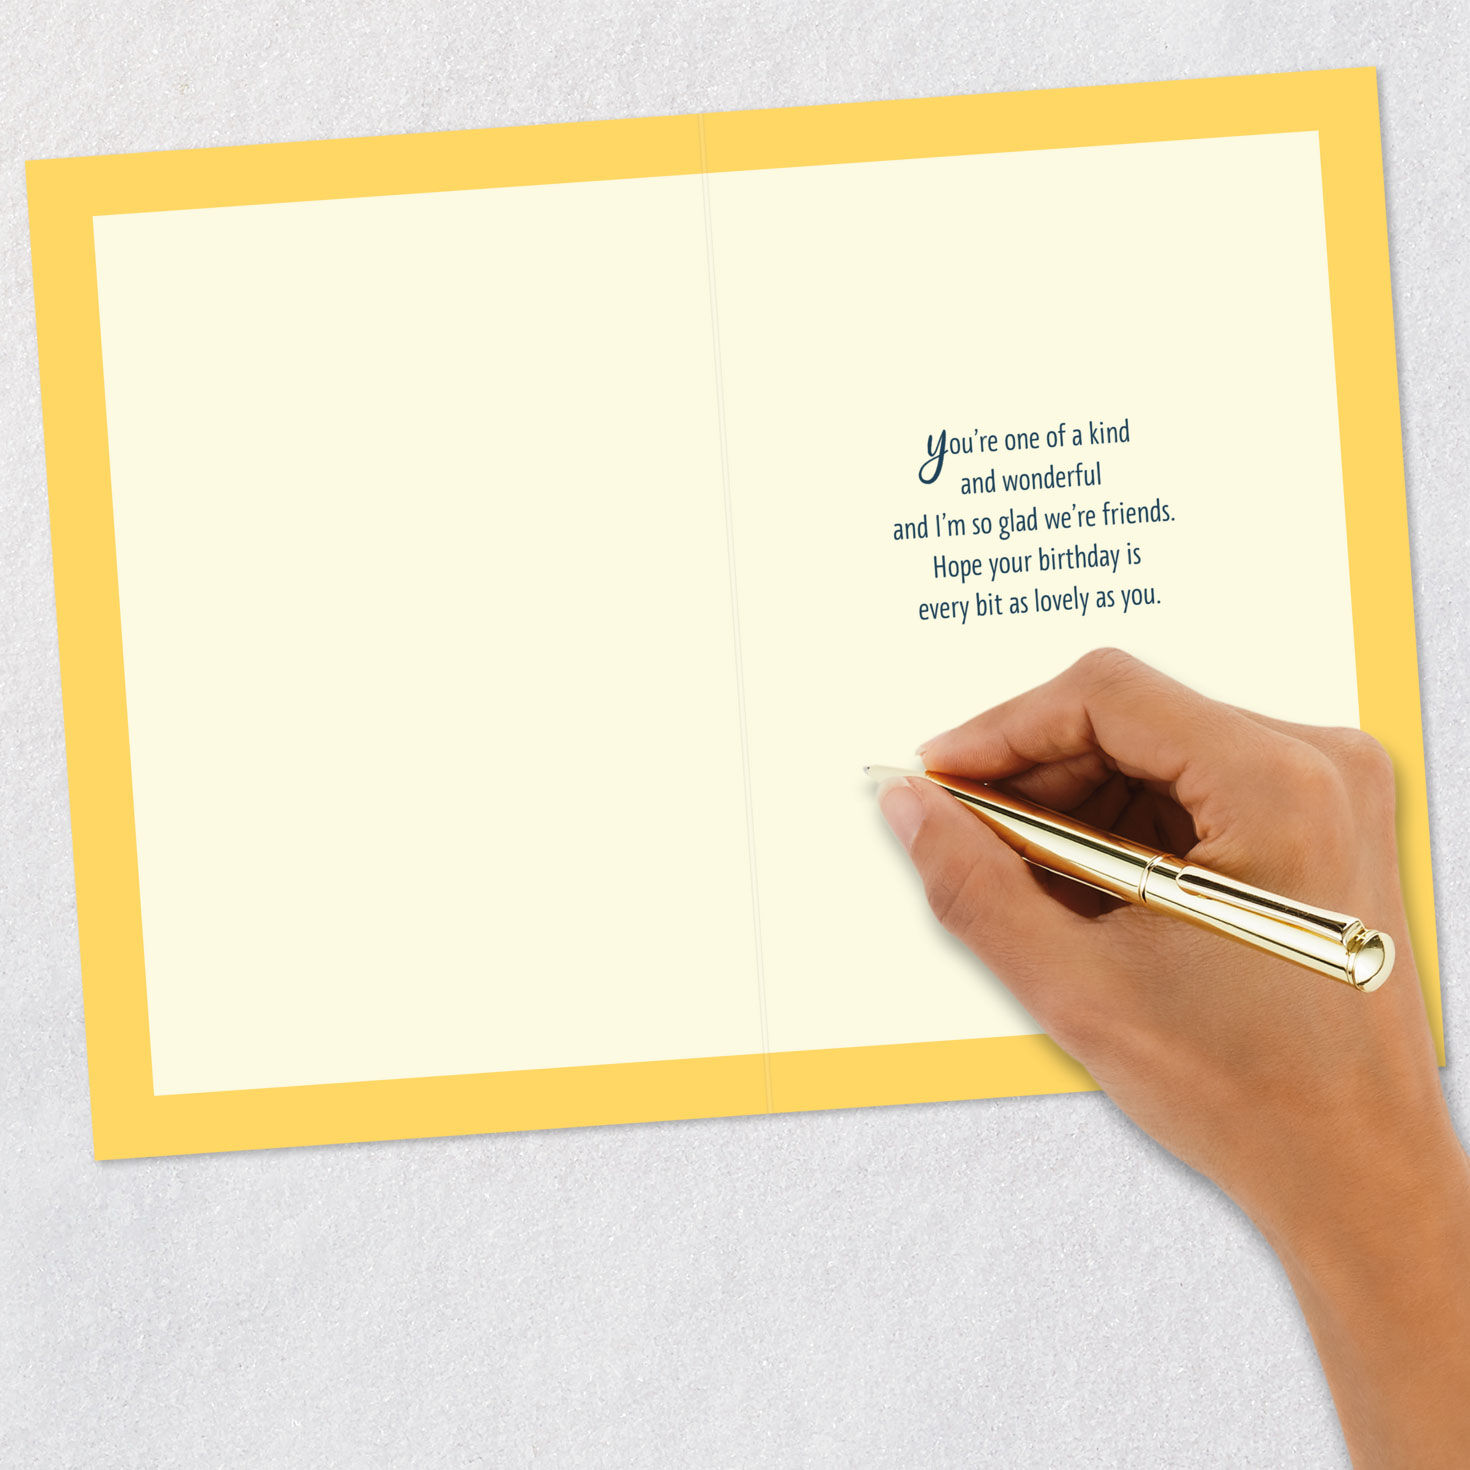 You're one of a kind
and wonderful
and I'm so glad we're friends.
Hope your birthday is
every bit as lovely as you.